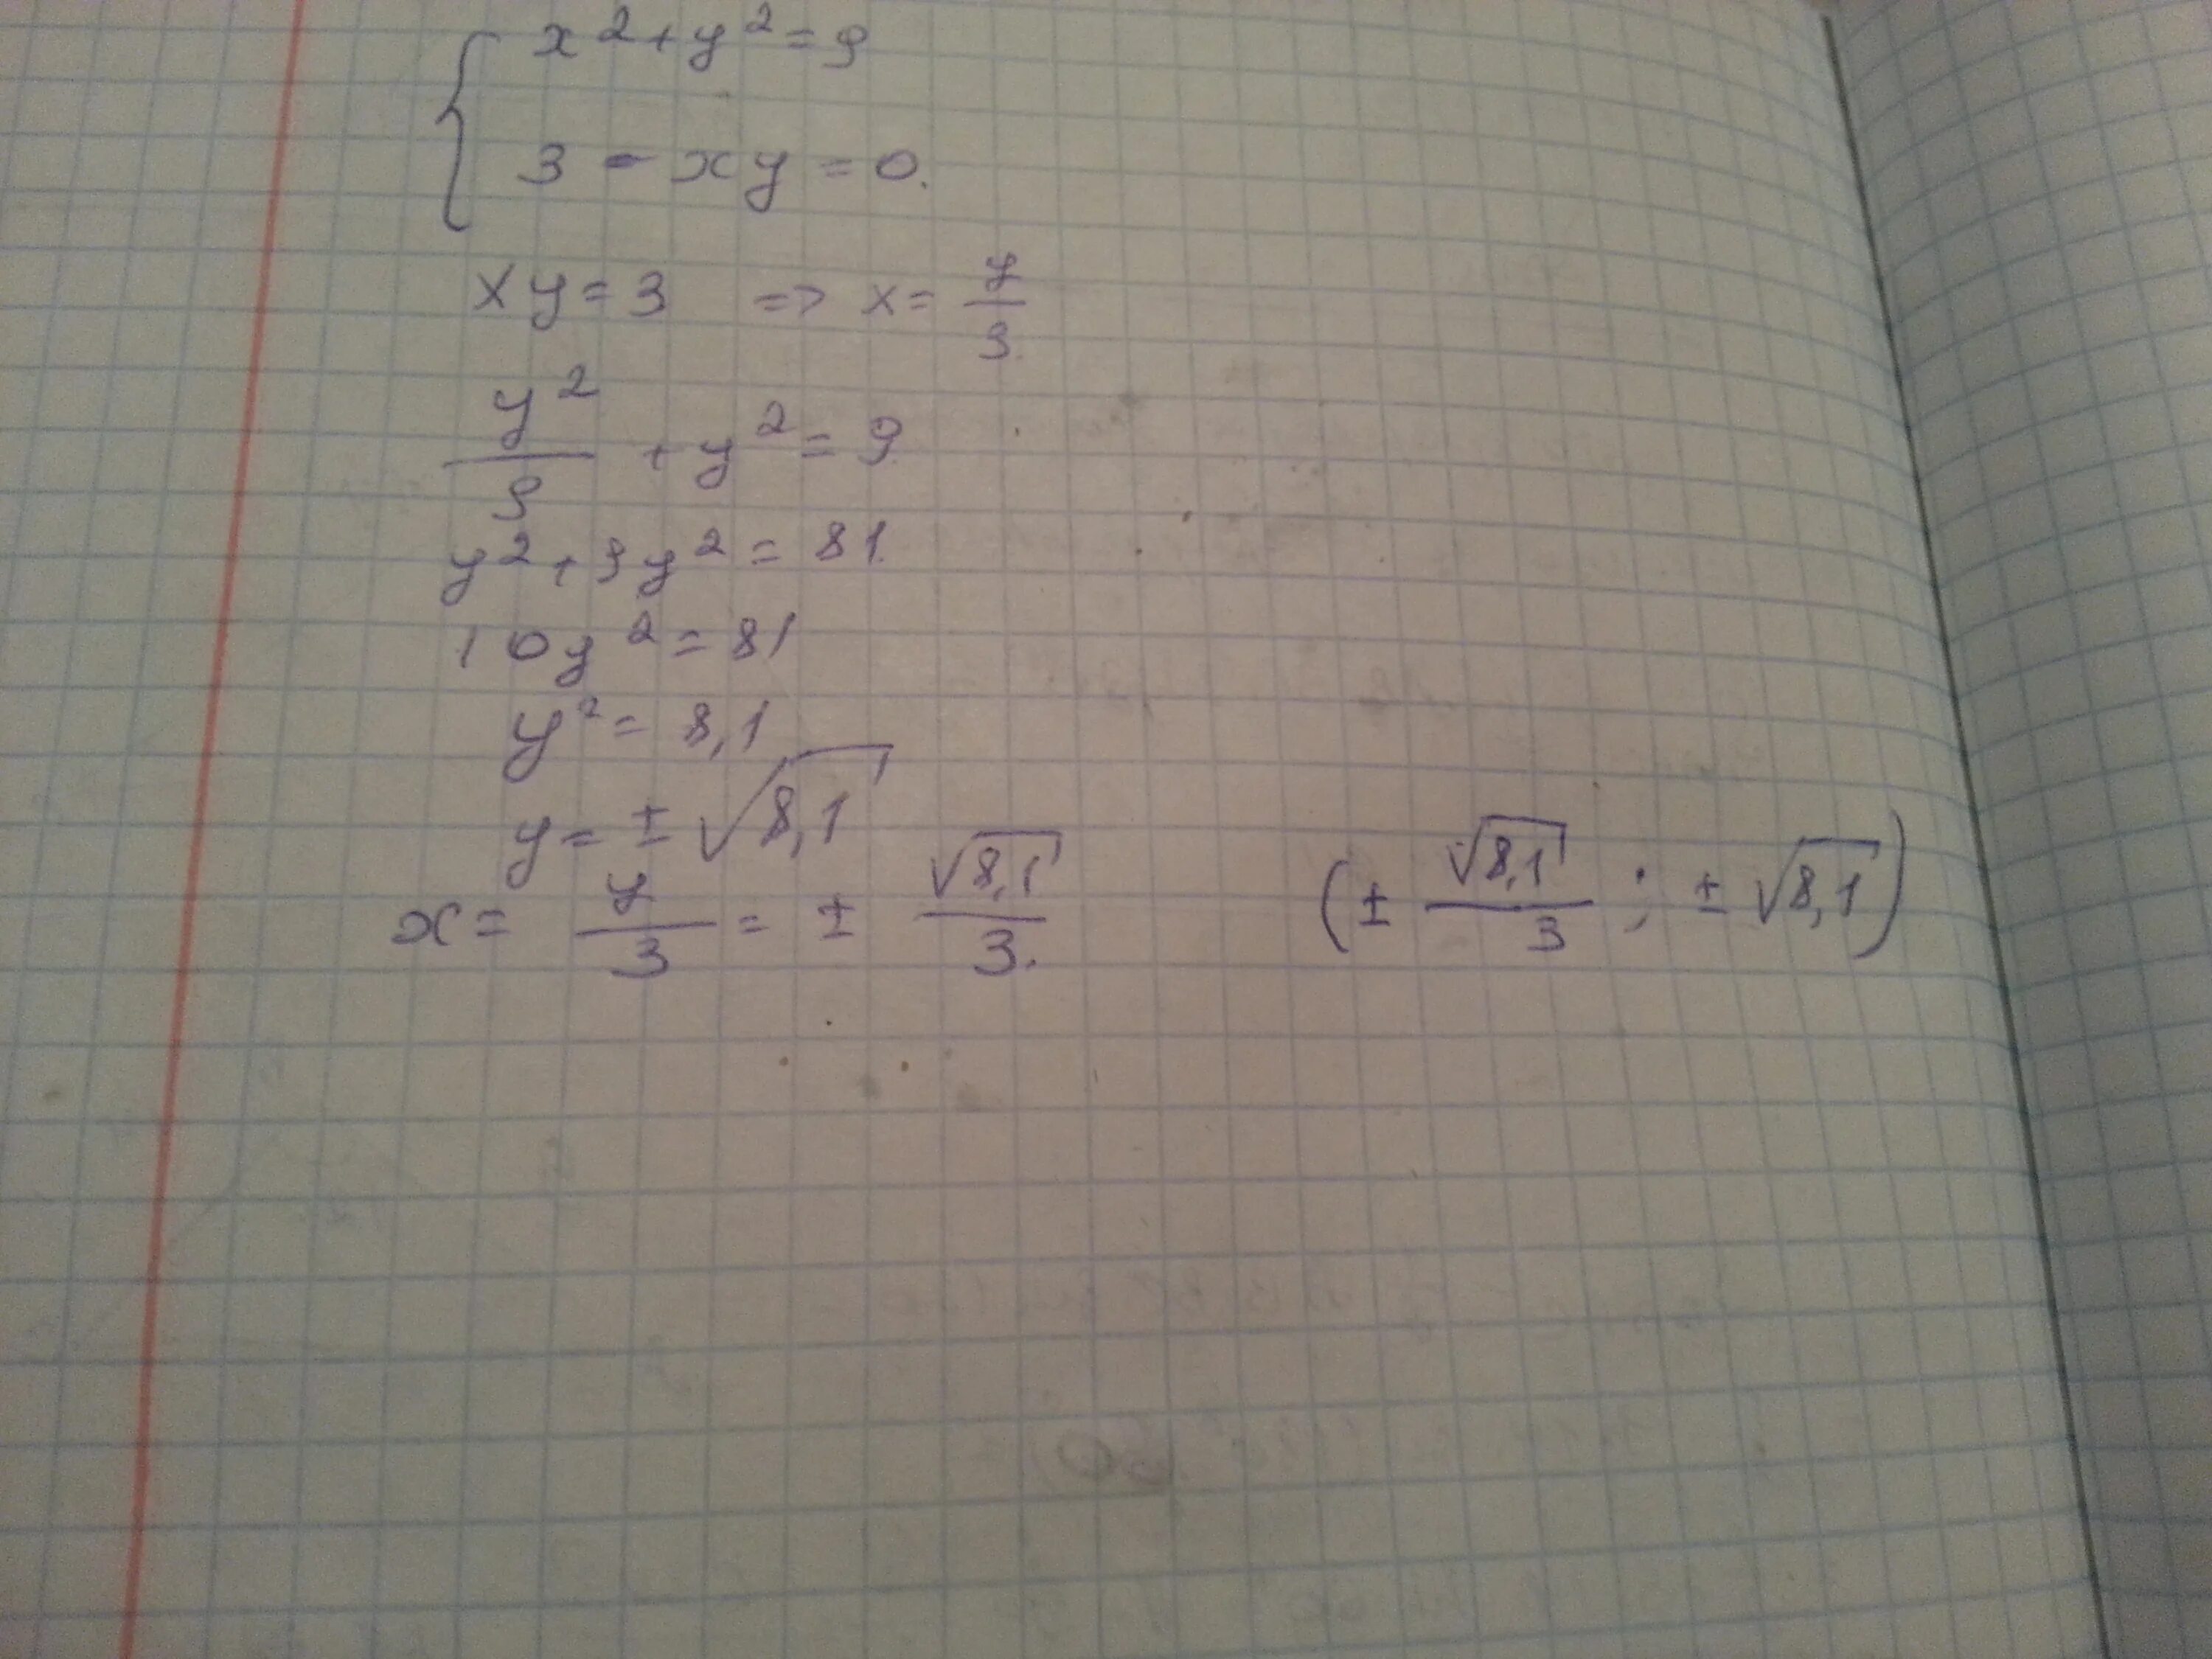 x² + y² = 9
3 - xy = 0.
xy = 3 => x = y/3
y²/9 + y² = 9
y² + 9y² = 81.
10y² = 81
y² = 8,1
y = ± √8,1
x = y/3 = ± √8,1/3. (± √8,1/3 ; ± √8,1)